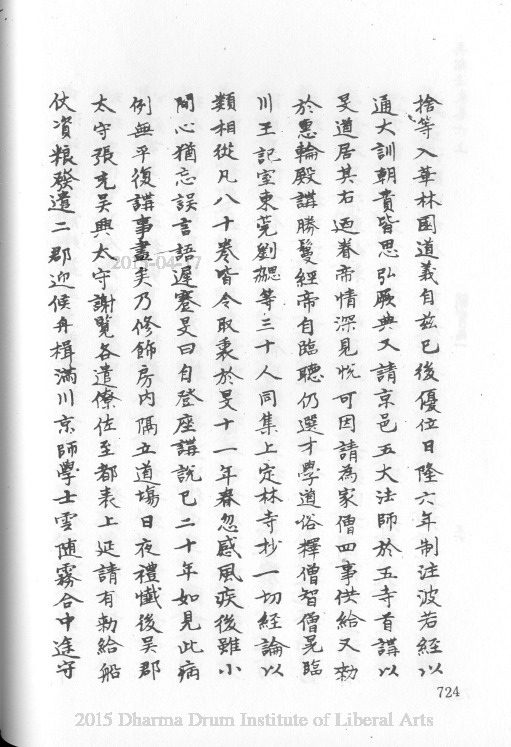 捨等入華林園道義自茲已後優位日隆六年制注波若經以
通大訓朝貴皆思弘厥典又請京邑五大法師於五寺首講以
旻道居其右迺眷帝情深見悅可因請為家僧四事供給又勑
於惠輪殿講勝鬘經帝自臨聽仍選才學道俗釋僧智僧晃臨
川王記室東莞劉勰等三十人同集上定林寺抄一切經論以
類相從凡八十卷皆令取衷於旻十一年春忽感風疾後雖小
間心猶忘誤言語遲蹇旻曰自登座講說已二十年如見此病
例無平復講事盡矣乃修飾房內隔立道場日夜禮懺後吳郡
太守張充吳興太守謝覽各遣僚佐至都表上延請有勑給船
仗資粮發遣二郡迎候舟楫滿川京師學士雲隨霧合中途守
724
2015-04-17
2015 Dharma Drum Institute of Liberal Arts